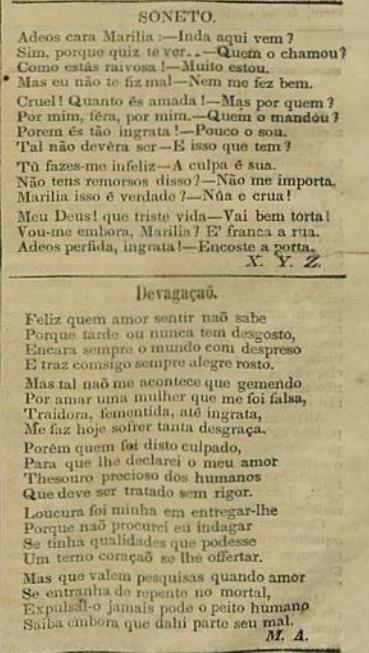 SONETO.
Adeos cara Marilia:—Inda aqui vem?
Sim, porque quiz te ver..—Quem o chamou?
Como estás raivosa!—Muito estou.
Mas eu não te fiz mal—Nem me fez bem.
Cruel! Quanto és amada!—Mas por quem?
Por mim, féra, por mim.—Quem o mandou?
Porem és tão ingrata!—Pouco o sou.
Tal não devêra ser—E isso que tem?
Tû fazes-me infeliz—A culpa é sua.
Não tens remorsos disso?—Não me importa.
Marilia isso é verdade?—Núa e crua!
Meu Deus! que triste vida—Vai bem torta!
Vou-me embora, Marilia? E' franca a rua.
Adeos perfida, ingrata!—Encoste a porta.
X. Y. Z.
Devagaçaõ.
Feliz quem amor sentir naõ sabe
Porque tarde ou nunca tem desgosto,
Encara sempre o mundo com despreso
E traz comsigo sempre alegre rosto.
Mas tal naõ me acontece que gemendo
Por amar uma mulher que me foi falsa,
Traidora, fementida, até ingrata,
Me faz hoje sofrer tanta desgraça.
Porêm quem foi disto culpado,
Para que lhe declarei o meu amor
Thesouro precioso dos humanos
Que deve ser tratado sem rigor.
Loucura foi minha em entregar-lhe
Porque naõ procurei eu indagar
Se tinha qualidades que podesse
Um terno coraçaõ se lhe offertar.
Mas que valem pesquisas quando amor
Se entranha de repente no mortal,
Expulsal-o jamais pode o peito humano
Saiba embora que dahi parte seu mal.
M. A.